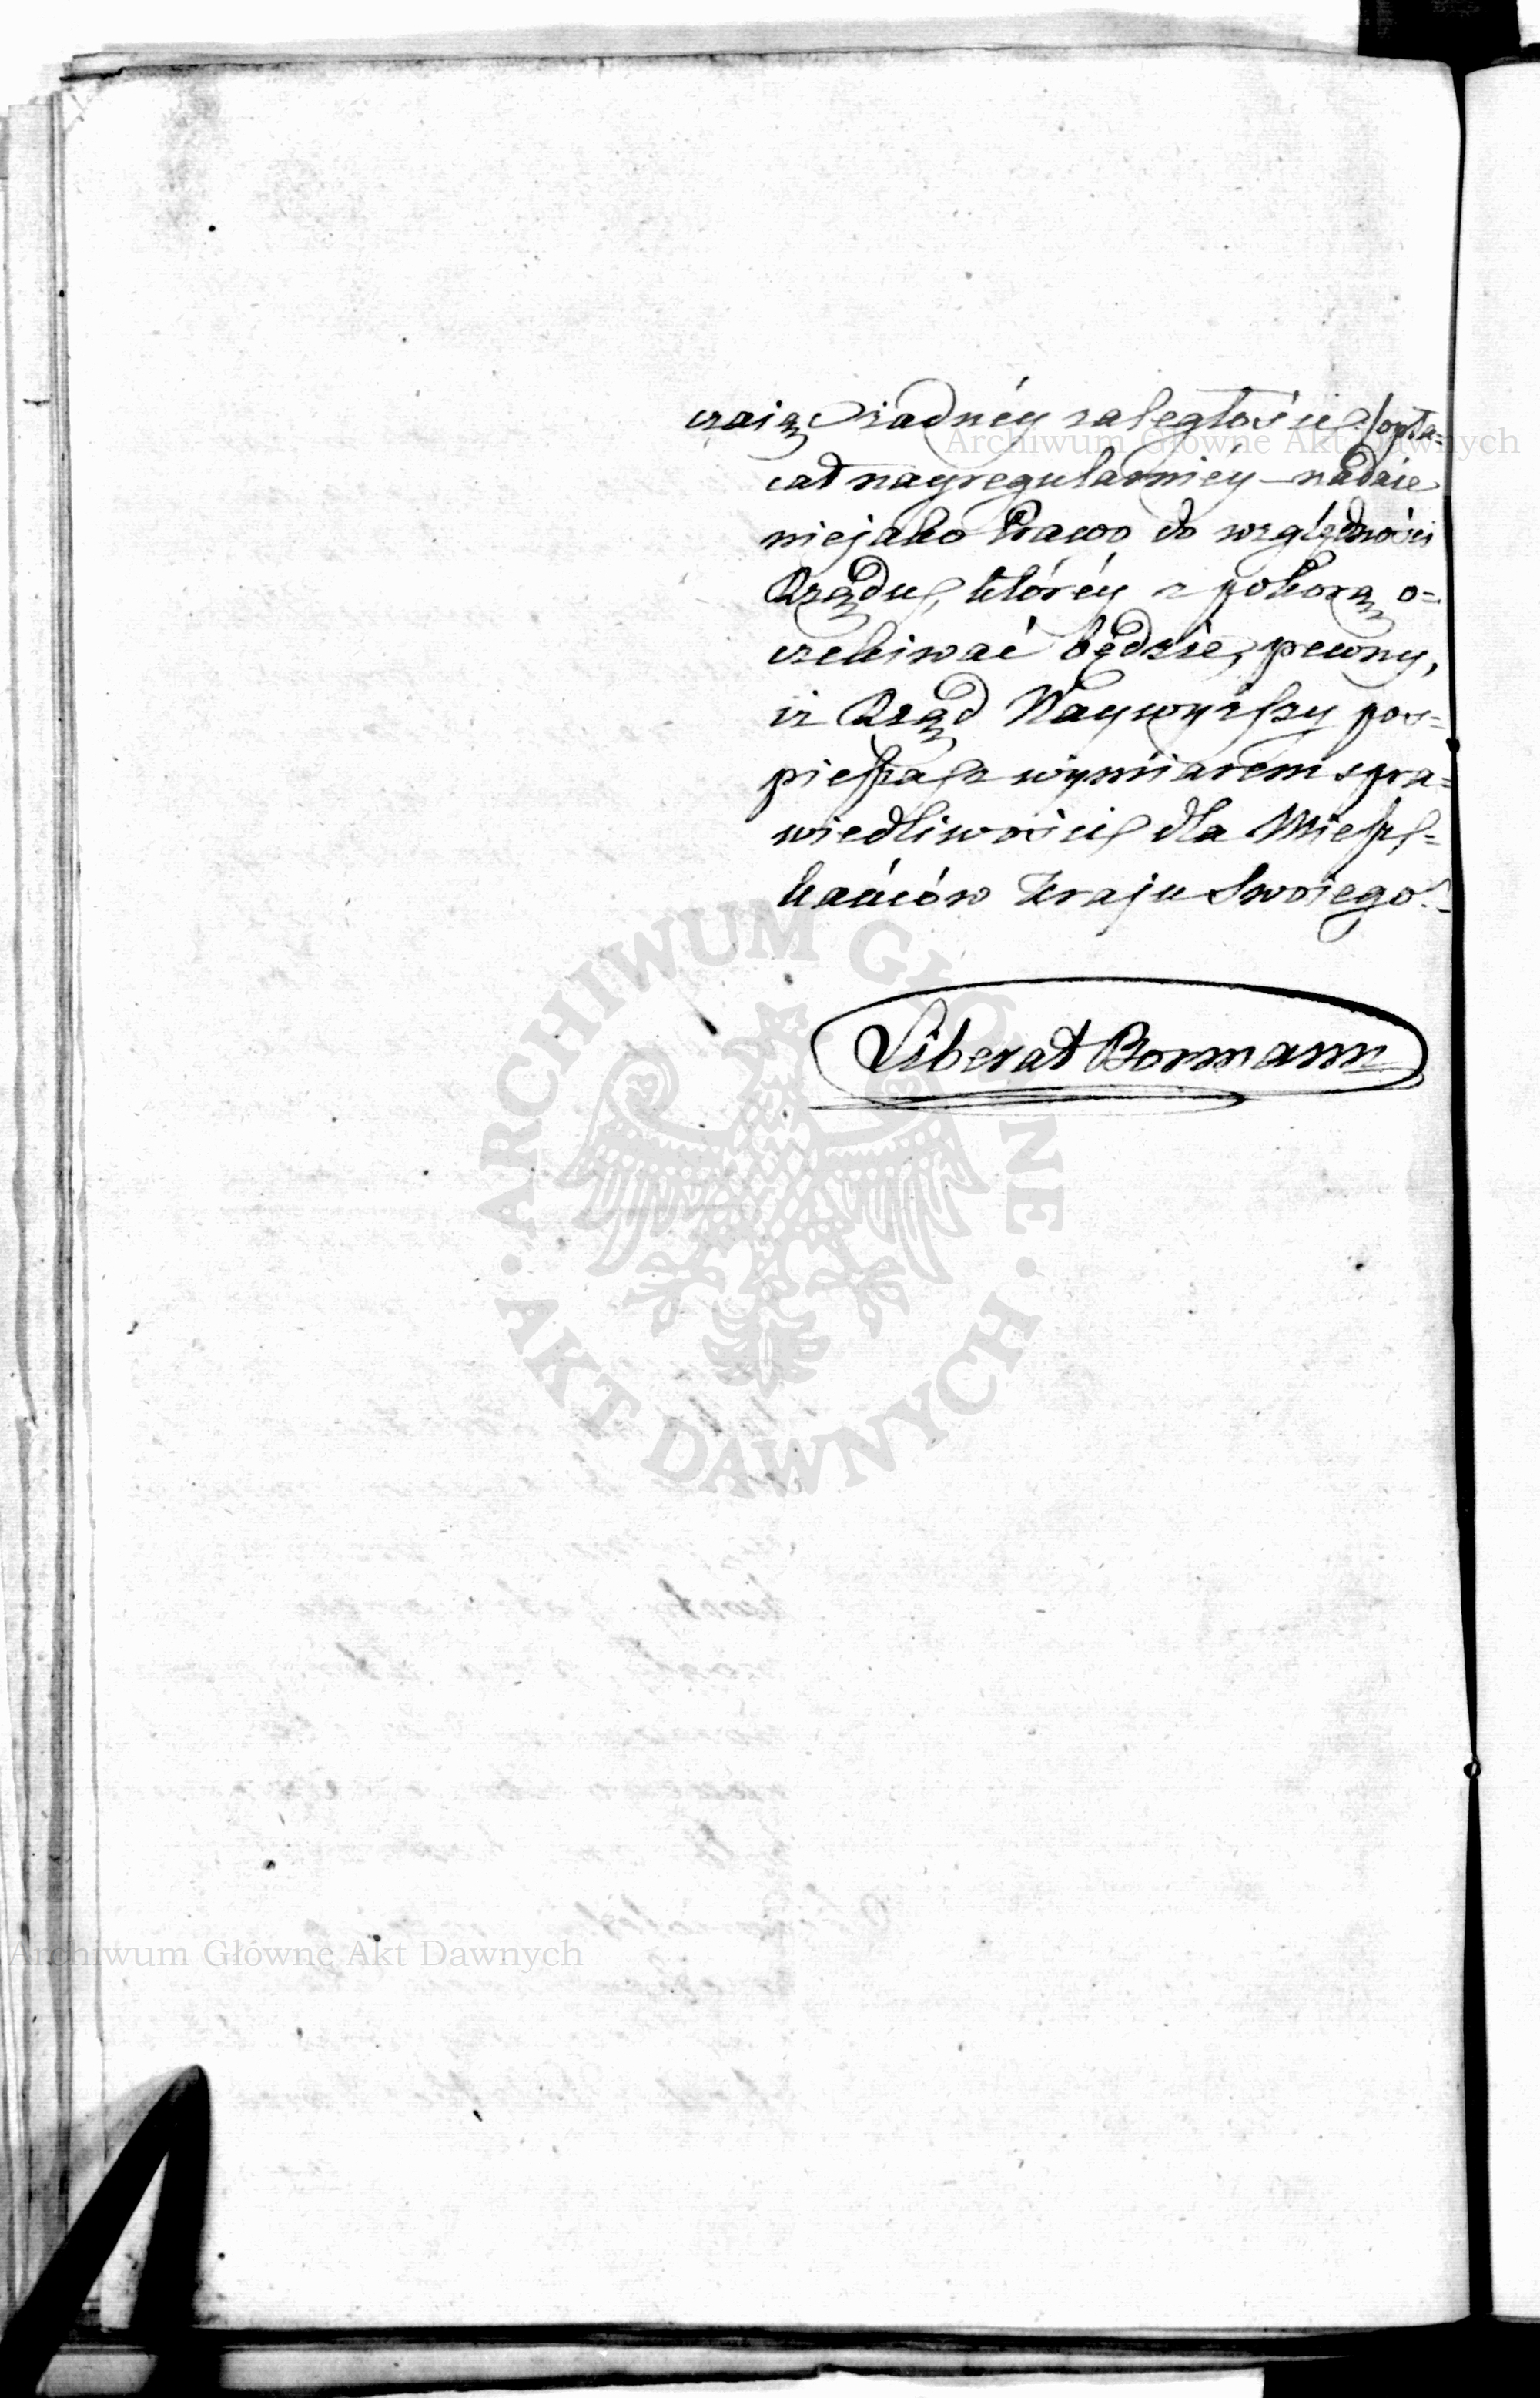 czaiąc żadnéy zaległości opła=
cał nayregularniéy – nadaie
niejako Prawo do względności
Rządu, któréy z pokorą o=
czekiwać będzie, pewny,
iż Rząd Naywyższy pos=
piesza z wymiarem spra=
wiedliwości dla Miesz=
kańców Kraju Swoiego.
Liberat Bormann
Archiwum Główne Akt Dawnych
ARCHIWUM GŁÓWNE · AKT DAWNYCH ·
Archiwum Główne Akt Dawnych